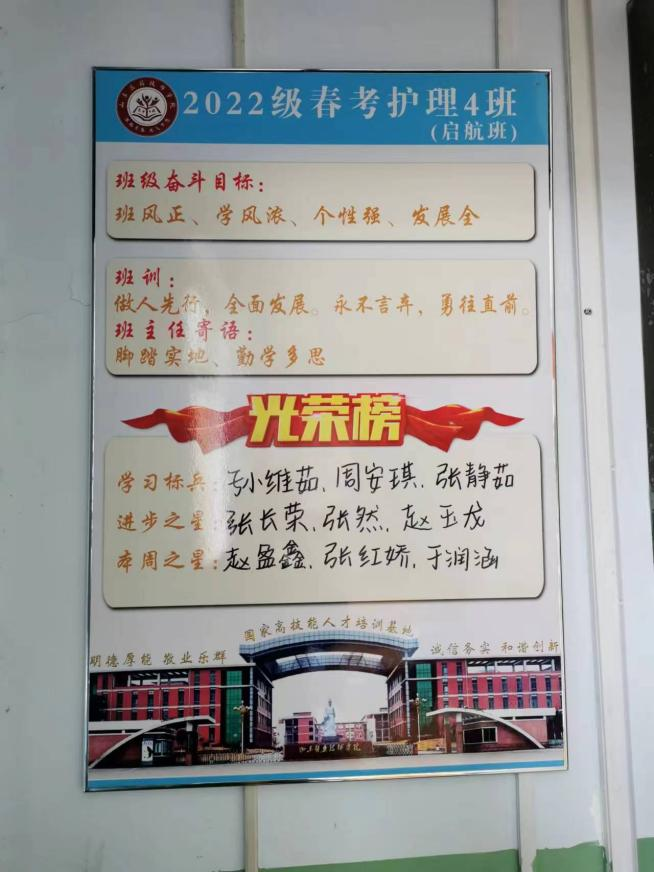 2022级春考护理4班
(启航班)
班级奋斗目标：
班风正、学风浓、个性强、发展全
班训：
做人先行，全面发展。永不言弃，勇往直前。
班主任寄语：
脚踏实地、勤学多思
光荣榜
学习标兵：孙维茹、周安琪、张静茹
进步之星：张长荣、张然、赵玉龙
本周之星：赵盈鑫、张红娇、于润涵
国家高技能人才培训基地
明德厚能 敬业乐群
诚信务实 和谐创新
山东医药技师学院